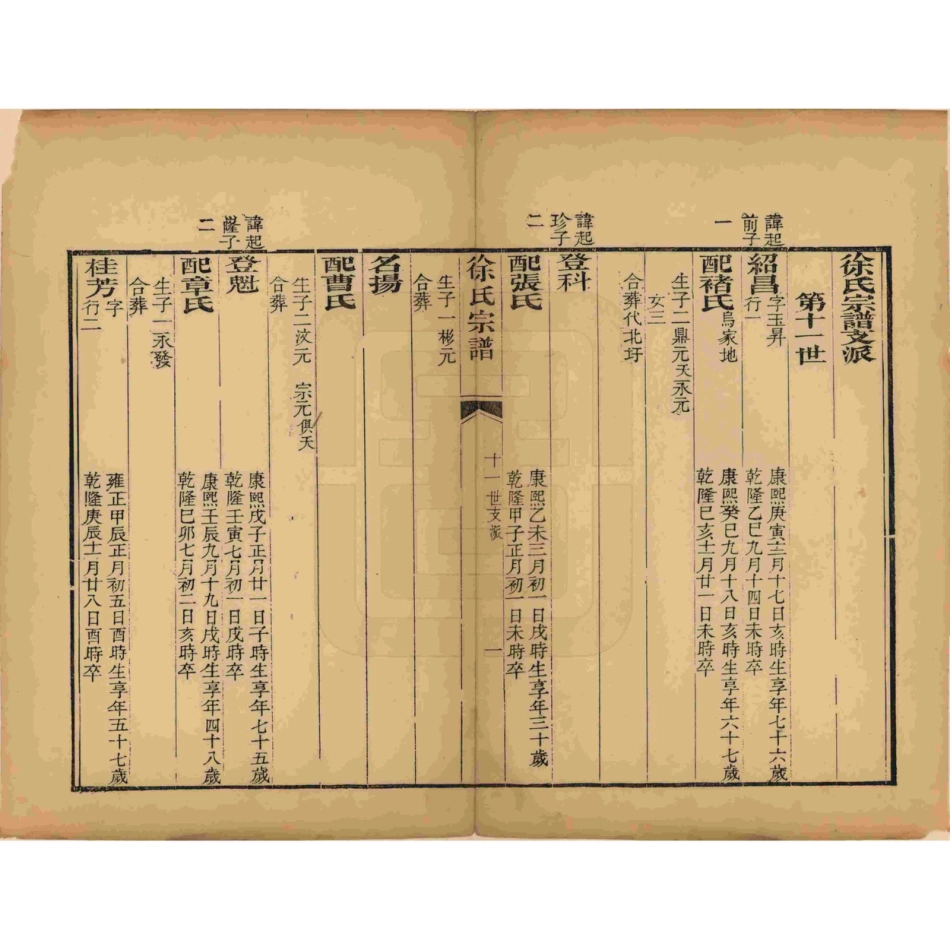 徐氏宗譜支派
第十一世
諱起
前子
一
紹昌
字玉昇
行一
康熙庚寅三月十七日亥時生享年七十六歲
乾隆乙巳九月十四日未時卒
配褚氏
烏家地
康熙癸巳九月十八日亥時生享年六十七歲
乾隆巳亥十一月廿一日未時卒
生子二鼎元夭永元
女三
合葬代北圩
諱起
珍子
二
登科
配張氏
康熙乙未三月初一日戌時生享年三十歲
乾隆甲子正月初一日未時卒
徐氏宗譜
十一世支派
一
生子一彬元
合葬
名揚
配曹氏
生子二汶元 宗元俱夭
合葬
諱起
隆子
二
登魁
康熙戊子正月廿一日子時生享年七十五歲
乾隆壬寅七月初一日戌時卒
配章氏
康熙壬辰九月十九日戌時生享年四十八歲
乾隆巳卯七月初二日亥時卒
生子一永發
合葬
桂芳
字
行二
雍正甲辰正月初五日酉時生享年五十七歲
乾隆庚辰十一月廿八日酉時卒